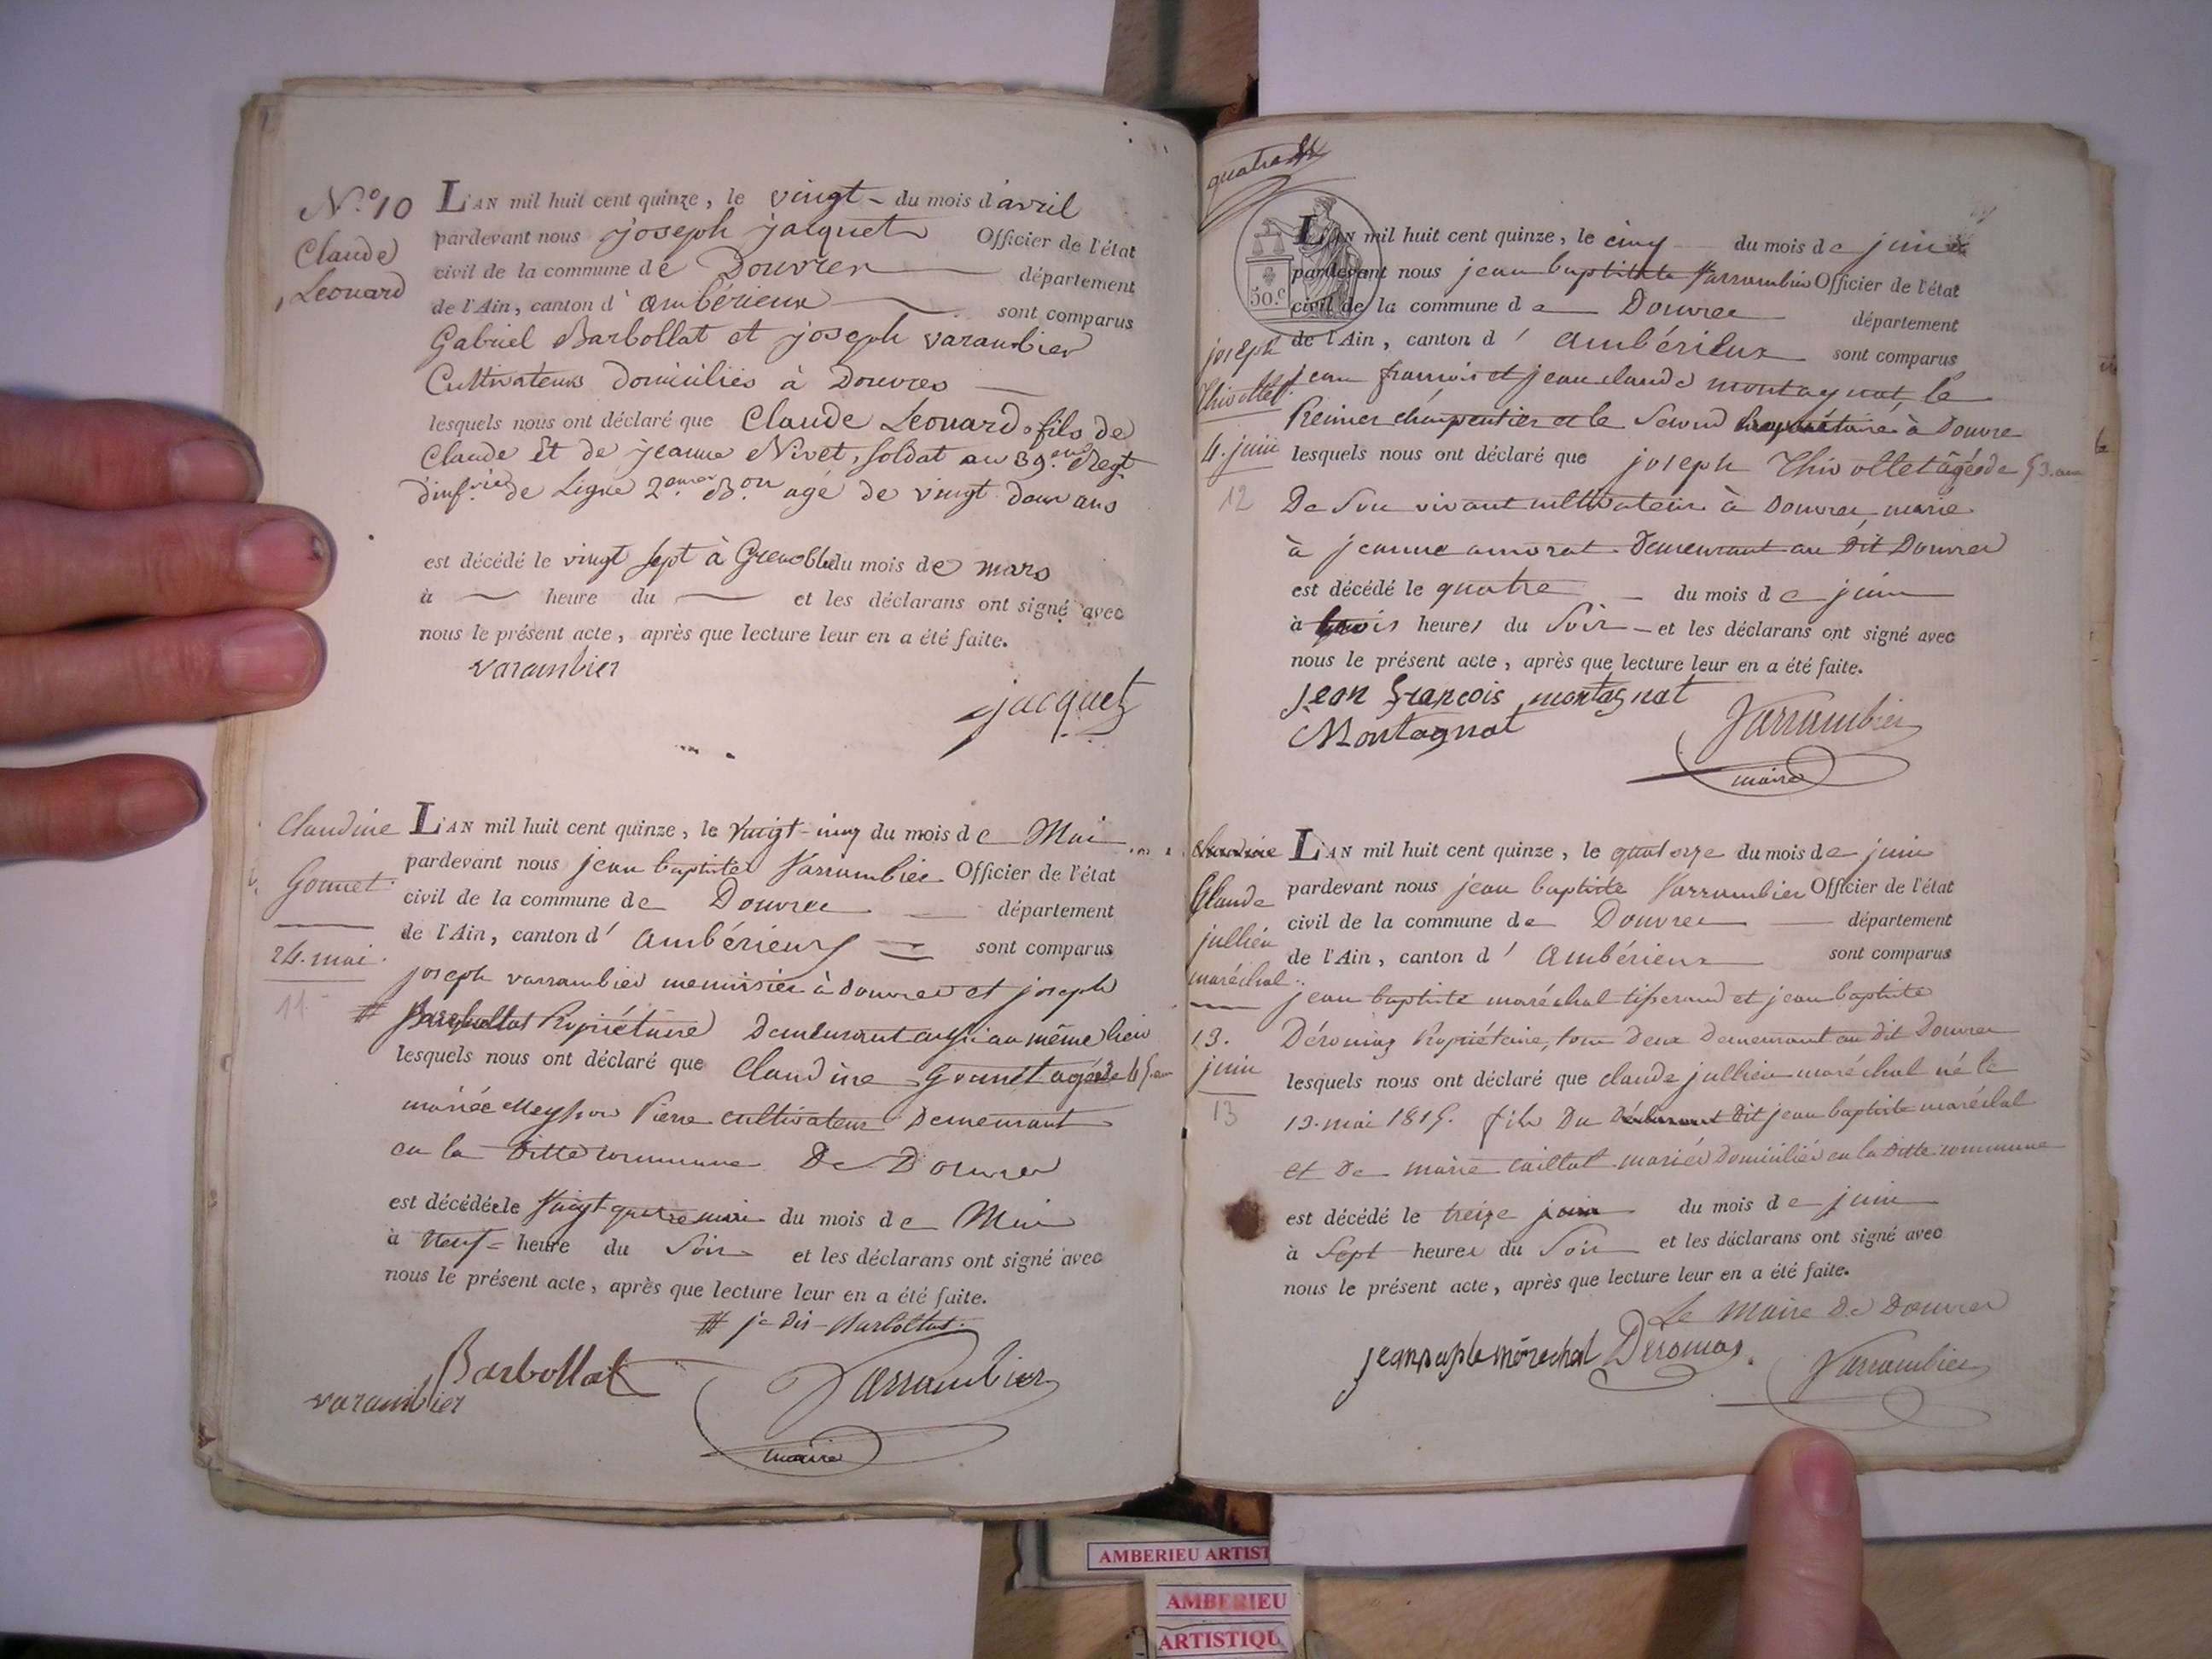 N.º 10
Claude
Leonard
L'AN mil huit cent quinze, le vingt - du mois d'avril
pardevant nous joseph jacquet Officier de l'état
civil de la commune de Douvres département
de l'Ain, canton d'ambérieux sont comparus
Gabriel Barbollat et joseph varambier
Cultivateurs domiciliés à Douvres
lesquels nous ont déclaré que Claude Leonard fils de
Claude Et de jeanne Nivet, soldat au 39.eme Regt
d'inf.rie de Ligne 2.eme B.on agé de vingt deux ans
est décédé le vingt sept à Grenoble du mois de mars
à heure du et les déclarans ont signé avec
nous le présent acte, après que lecture leur en a été faite.
varambier
jacquet
Claudine
Gonnet
24. mai
11
L'AN mil huit cent quinze, le Vingt-cinq du mois de Mai
pardevant nous jean baptiste Varrambier Officier de l'état
civil de la commune de Douvres département
de l'Ain, canton d'ambérieux sont comparus
joseph varrambier menuisier à douvres et joseph
# Propriétaire demeurant aussi au même lieu
lesquels nous ont déclaré que Claudine Gonnet agée de 45. ans
mariée Meysson Pierre cultivateur Demeurant
en la ditte commune De Douvres
est décédée le Vingt quatre mai du mois de Mai
à Neuf heure du Soir et les déclarans ont signé avec
nous le présent acte, après que lecture leur en a été faite.
# je dis Barbollat
Barbollat
varambier
Varrambier
maire
50.c
joseph
thivollet
4. juin
12
L'AN mil huit cent quinze, le cinq du mois de juin
pardevant nous jean baptiste Varrambier Officier de l'état
civil de la commune de Douvres département
de l'Ain, canton d'ambérieux sont comparus
jean françois et jean claude montagnat, le
Premier charpentier et le Second propriétaire à Douvre
lesquels nous ont déclaré que joseph Thivollet âgé de 53. ans
De Son vivant cultivateur à Douvres, marié
à jeanne amorat Demeurant au dit Douvres
est décédé le quatre du mois de juin
à trois heures du Soir et les déclarans ont signé avec
nous le présent acte, après que lecture leur en a été faite.
jean françois montagnat
Montagnat
Varrambier
maire
Claude
jullien
maréchal
13.
juin
13
L'AN mil huit cent quinze, le quatorze du mois de juin
pardevant nous jean baptiste Varrambier Officier de l'état
civil de la commune de Douvres département
de l'Ain, canton d'ambérieux sont comparus
jean baptiste maréchal tisserand et jean baptiste
Déromas Propriétaire, tous deux demeurant au dit Douvres
lesquels nous ont déclaré que claude jullien maréchal né le
13. mai 1815. fils Du Déclarant dit jean baptiste maréchal
et De marie caillat mariés Domiciliés en la ditte commune
est décédé le treize juin du mois de juin
à Sept heures du Soir et les déclarans ont signé avec
nous le présent acte, après que lecture leur en a été faite.
Le Maire De Douvres
Deromas
Varrambier
AMBERIEU ARTIST
AMBERIEU
ARTISTIQU